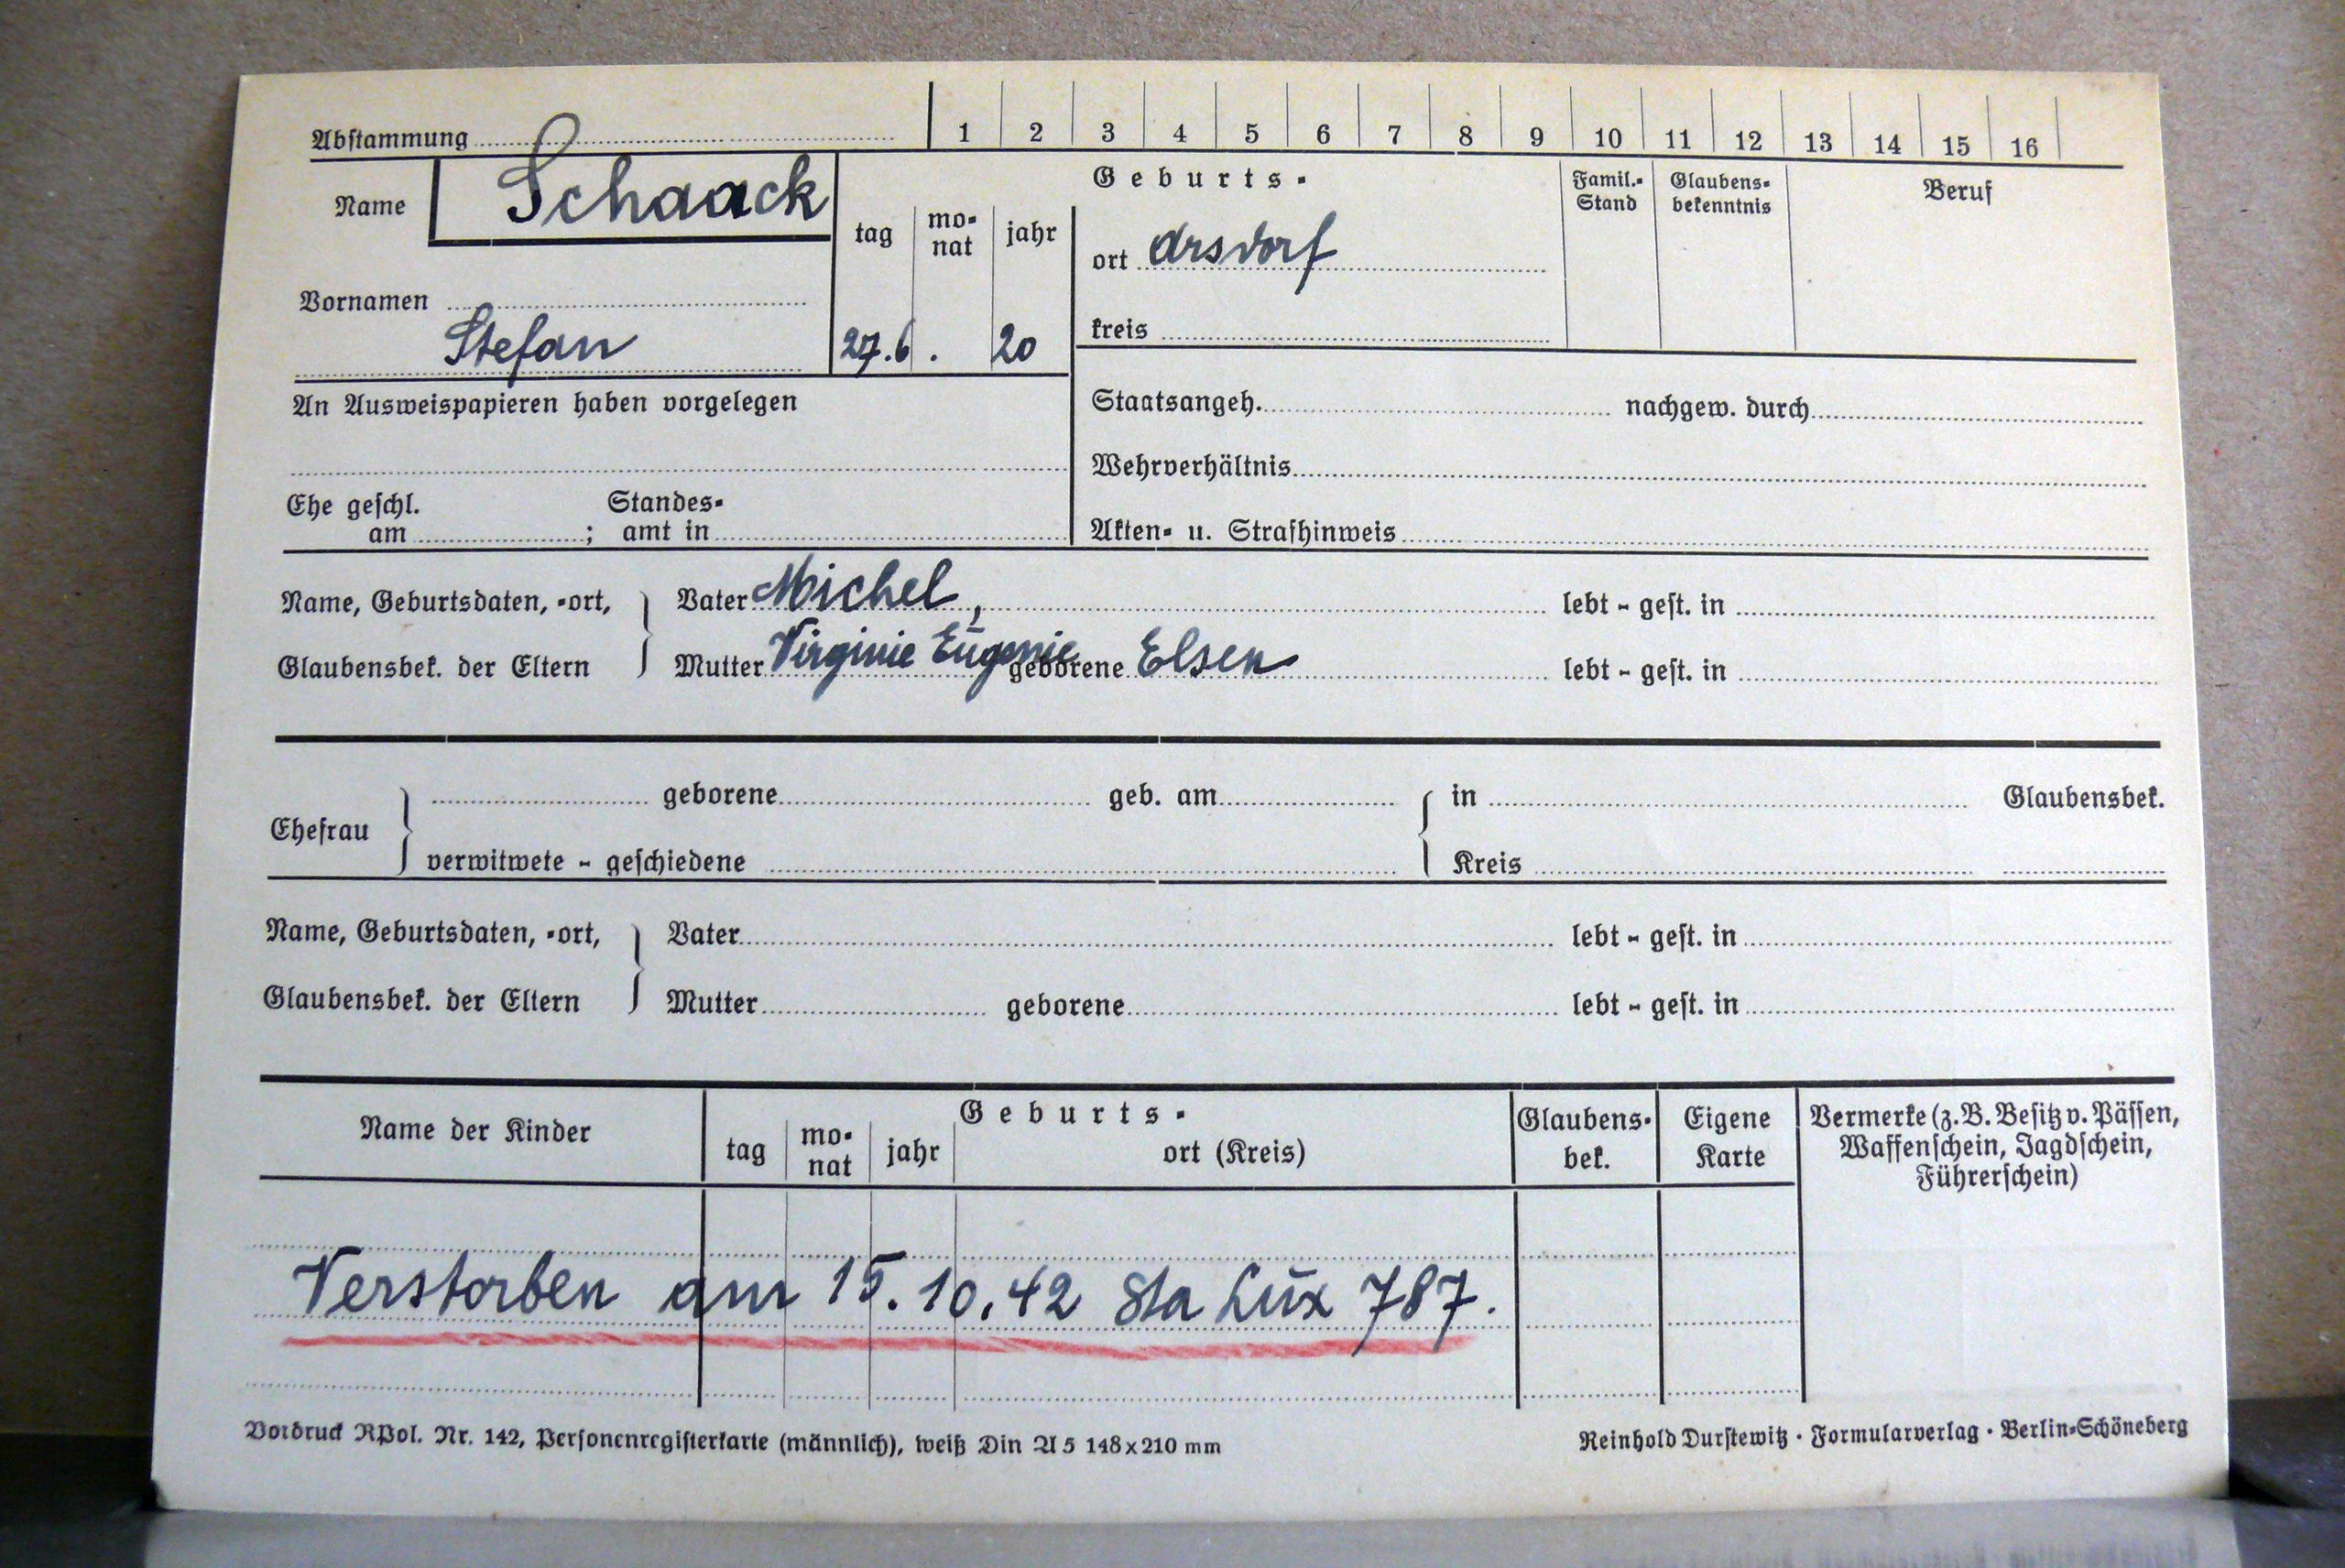 Abstammung 1 2 3 4 5 6 7 8 9 10 11 12 13 14 15 16
Name Schaack
Vornamen
Stefan
tag mo- nat jahr
27. 6. 20
Geburts-
ort Arsdorf
kreis
Famil.- Stand
Glaubens- bekenntnis
Beruf
An Ausweispapieren haben vorgelegen
Staatsangeh. nachgew. durch
Wehrverhältnis
Ehe geschl. Standes-
am ; amt in
Akten- u. Strafhinweis
Name, Geburtsdaten, -ort, Vater Michel, lebt - gest. in
Glaubensbek. der Eltern Mutter Virginie Eugenie geborene Elsen lebt - gest. in
geborene geb. am in Glaubensbek.
Ehefrau
verwitwete - geschiedene Kreis
Name, Geburtsdaten, -ort, Vater lebt - gest. in
Glaubensbek. der Eltern Mutter geborene lebt - gest. in
Name der Kinder
Geburts-
tag mo- nat jahr ort (Kreis)
Glaubens- bek.
Eigene Karte
Vermerke (z.B. Besitz v. Pässen,
Waffenschein, Jagdschein,
Führerschein)
Verstorben am 15.10.42 Sta Lux 787.
Vordruck RPol. Nr. 142, Personenregisterkarte (männlich), weiß Din A 5 148x210 mm
Reinhold Durstewitz · Formularverlag · Berlin-Schöneberg